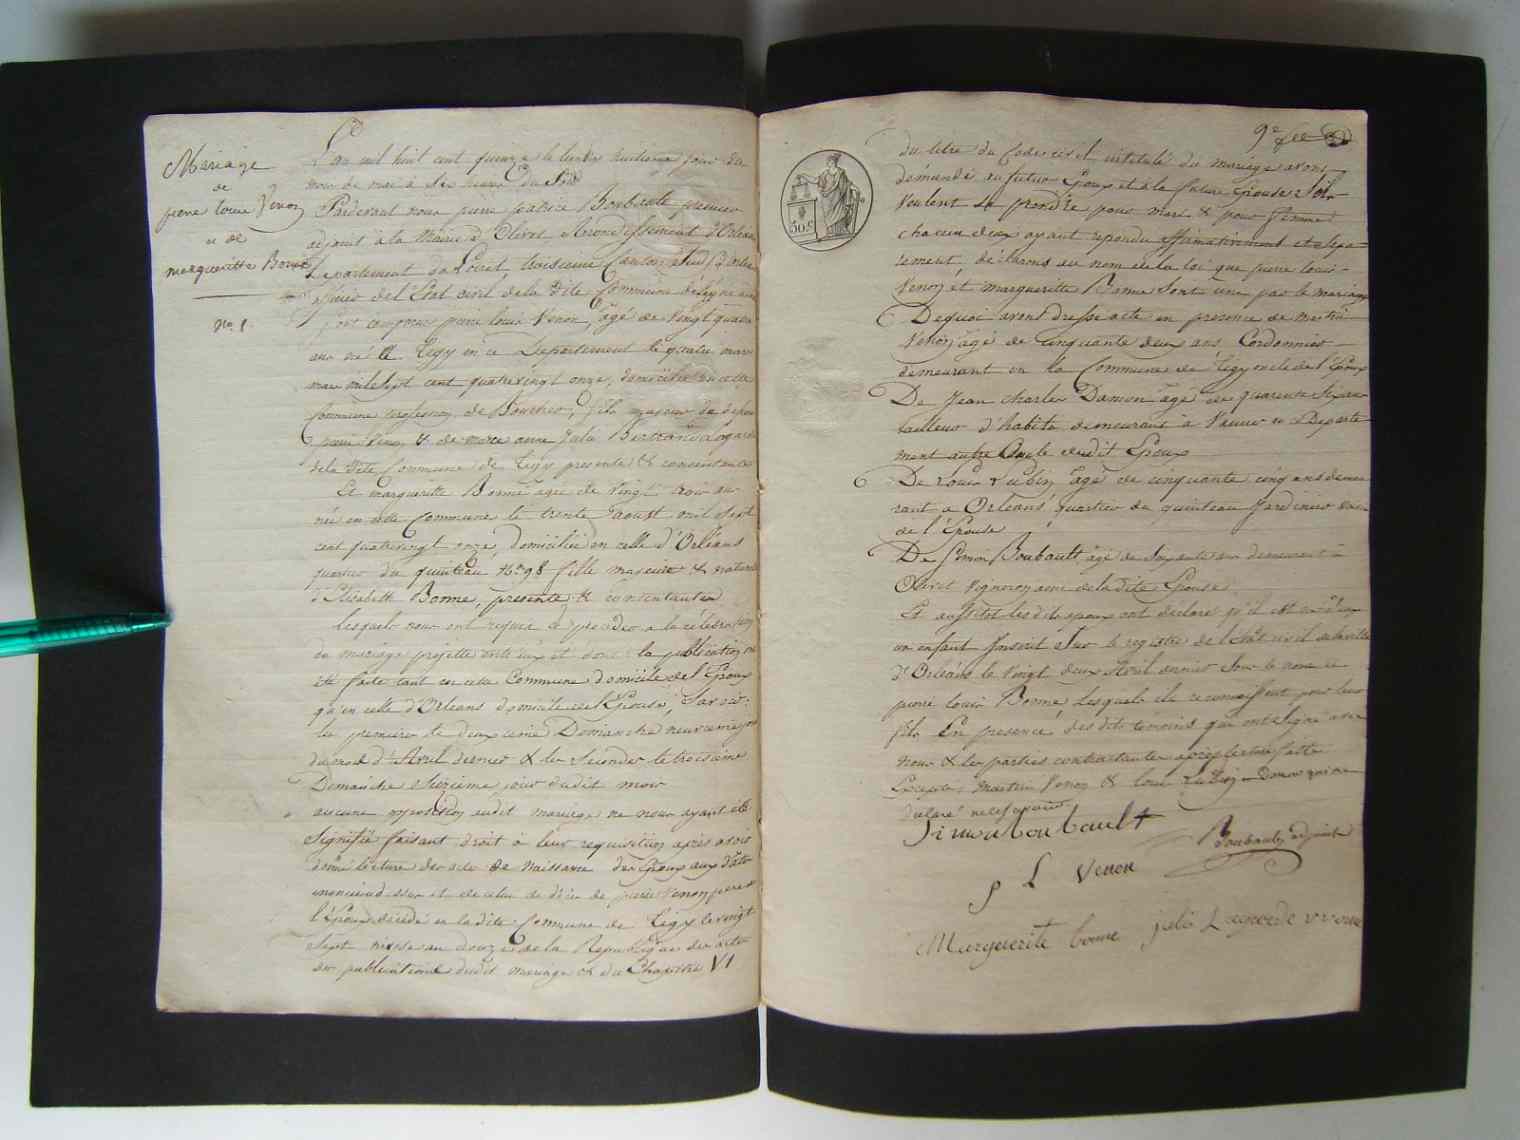 Mariage
de
pierre louis Venon
et de
margueritte Bonne
No. 1.
L'an mil huit cent quinze le lundy huitieme jour du
mois de mai à six heures du soir
Pardevant nous pierre patrice Boubault premier
adjoint à la Mairie d'Olivet, Arrondissement d'Orléans
Departement du Loiret, troisieme Canton Sud d'Orléans
officier de l'Etat civil de la dite Commune
Sont comparus pierre louis Venon, âgé de vingt quatre
ans né à Tigy en ce Departement le quatre mars
mil sept cent quatrevingt onze, domicilié en cette
Commune profession de Boucher, fils majeur de defunt
pierre Venon & de marie anne Julie Lagarde
de la dite Commune de Tigy presente & consentante
Et margueritte Bonne agée de vingt trois ans
née en cette Commune le trente aoust mil sept
cent quatrevingt onze, domiciliée en celle d'Orléans
quartier du quinteau No. 98 fille majeure & naturelle
d'Elisabeth Bonne, presente & consentante
Lesquels nous ont requis de proceder a la célébration
du mariage projetté entr'eux et dont la publication a
été faite tant en cette Commune domicile de l'Epoux
qu'en celle d'Orléans domicile de l'Epouse, Savoir:
les premiere le deuxieme Dimanche neuvieme jour
du mois d'Avril dernier & les secondes le troisieme
Dimanche seizieme jour dudit mois
aucune opposition audit mariage ne nous ayant été
signifiée faisant droit à leur requisition après avoir
donné lecture des actes de naissance des Epoux aux dates
enoncées et de celui de décès de pierre Venon pere de
l'Epoux décédé en la dite Commune de Tigy le vingt
sept nivose an douze de la Republique des actes
de publications dudit mariage & du Chapitre VI
9e
50 c
du titre du Code civil intitulé du mariage avons
demandé au futur Epoux et à la future Epouse s'ils
veulent se prendre pour mari & pour femme
chacun d'eux ayant repondu affirmativement et sepa-
rement, declarons au nom de la loi que pierre louis
Venon et margueritte Bonne sont unis par le mariage
De quoi avons dressé acte en presence de martin
Venon âgé de cinquante deux ans Cordonnier
demeurant en la Commune de Tigy oncle de l'Epoux
De Jean Charles Damon âgé de quarente six ans
tailleur d'habits demeurant à Vienne en ce Departe
ment autre Oncle dudit Epoux
De Louis Lubin âgé de cinquante cinq ans demeu
rant a Orléans quartier du quinteau Jardinier
de l'Epouse
De Simon Boubault âgé de soixante ans demeurant à
Olivet Vigneron ami de la dite Epouse
Et aussitôt lesdits epoux ont declaré qu'il est né d'eux
un enfant Inscrit sur le registre de l'Etat civil de la ville
d'Orléans le vingt deux Avril dernier sous le nom de
pierre louis Bonne, lesquels ils reconnoissent pour leur
fils En presence des dits temoins qui ont signé avec
nous & les parties contractantes après lecture faite
Excepté martin Venon & louis Lubin Damon qui ont
declaré ne le savoir
Simon boubault
Boubault adjoint
P L Venon
Marguerite bonne
juli Lagarde v venon